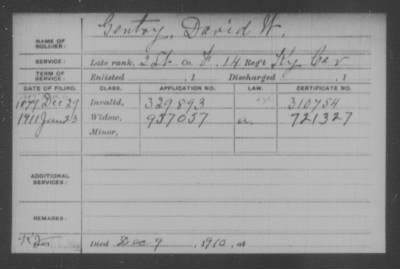 NAME OF SOLDIER: Gentry, David W.
SERVICE: Late rank, 2 Lt. Co. F, 14 Regt Ky Cav
TERM OF SERVICE: Enlisted , 1 Discharged , 1
DATE OF FILING. CLASS. APPLICATION NO. LAW. CERTIFICATE NO.
1879 Dec 29 Invalid, 329893 310754
1911 Jan 23 Widow, 957057 721327
Minor,
ADDITIONAL SERVICES:
REMARKS:
Died Dec 9, 1910, at